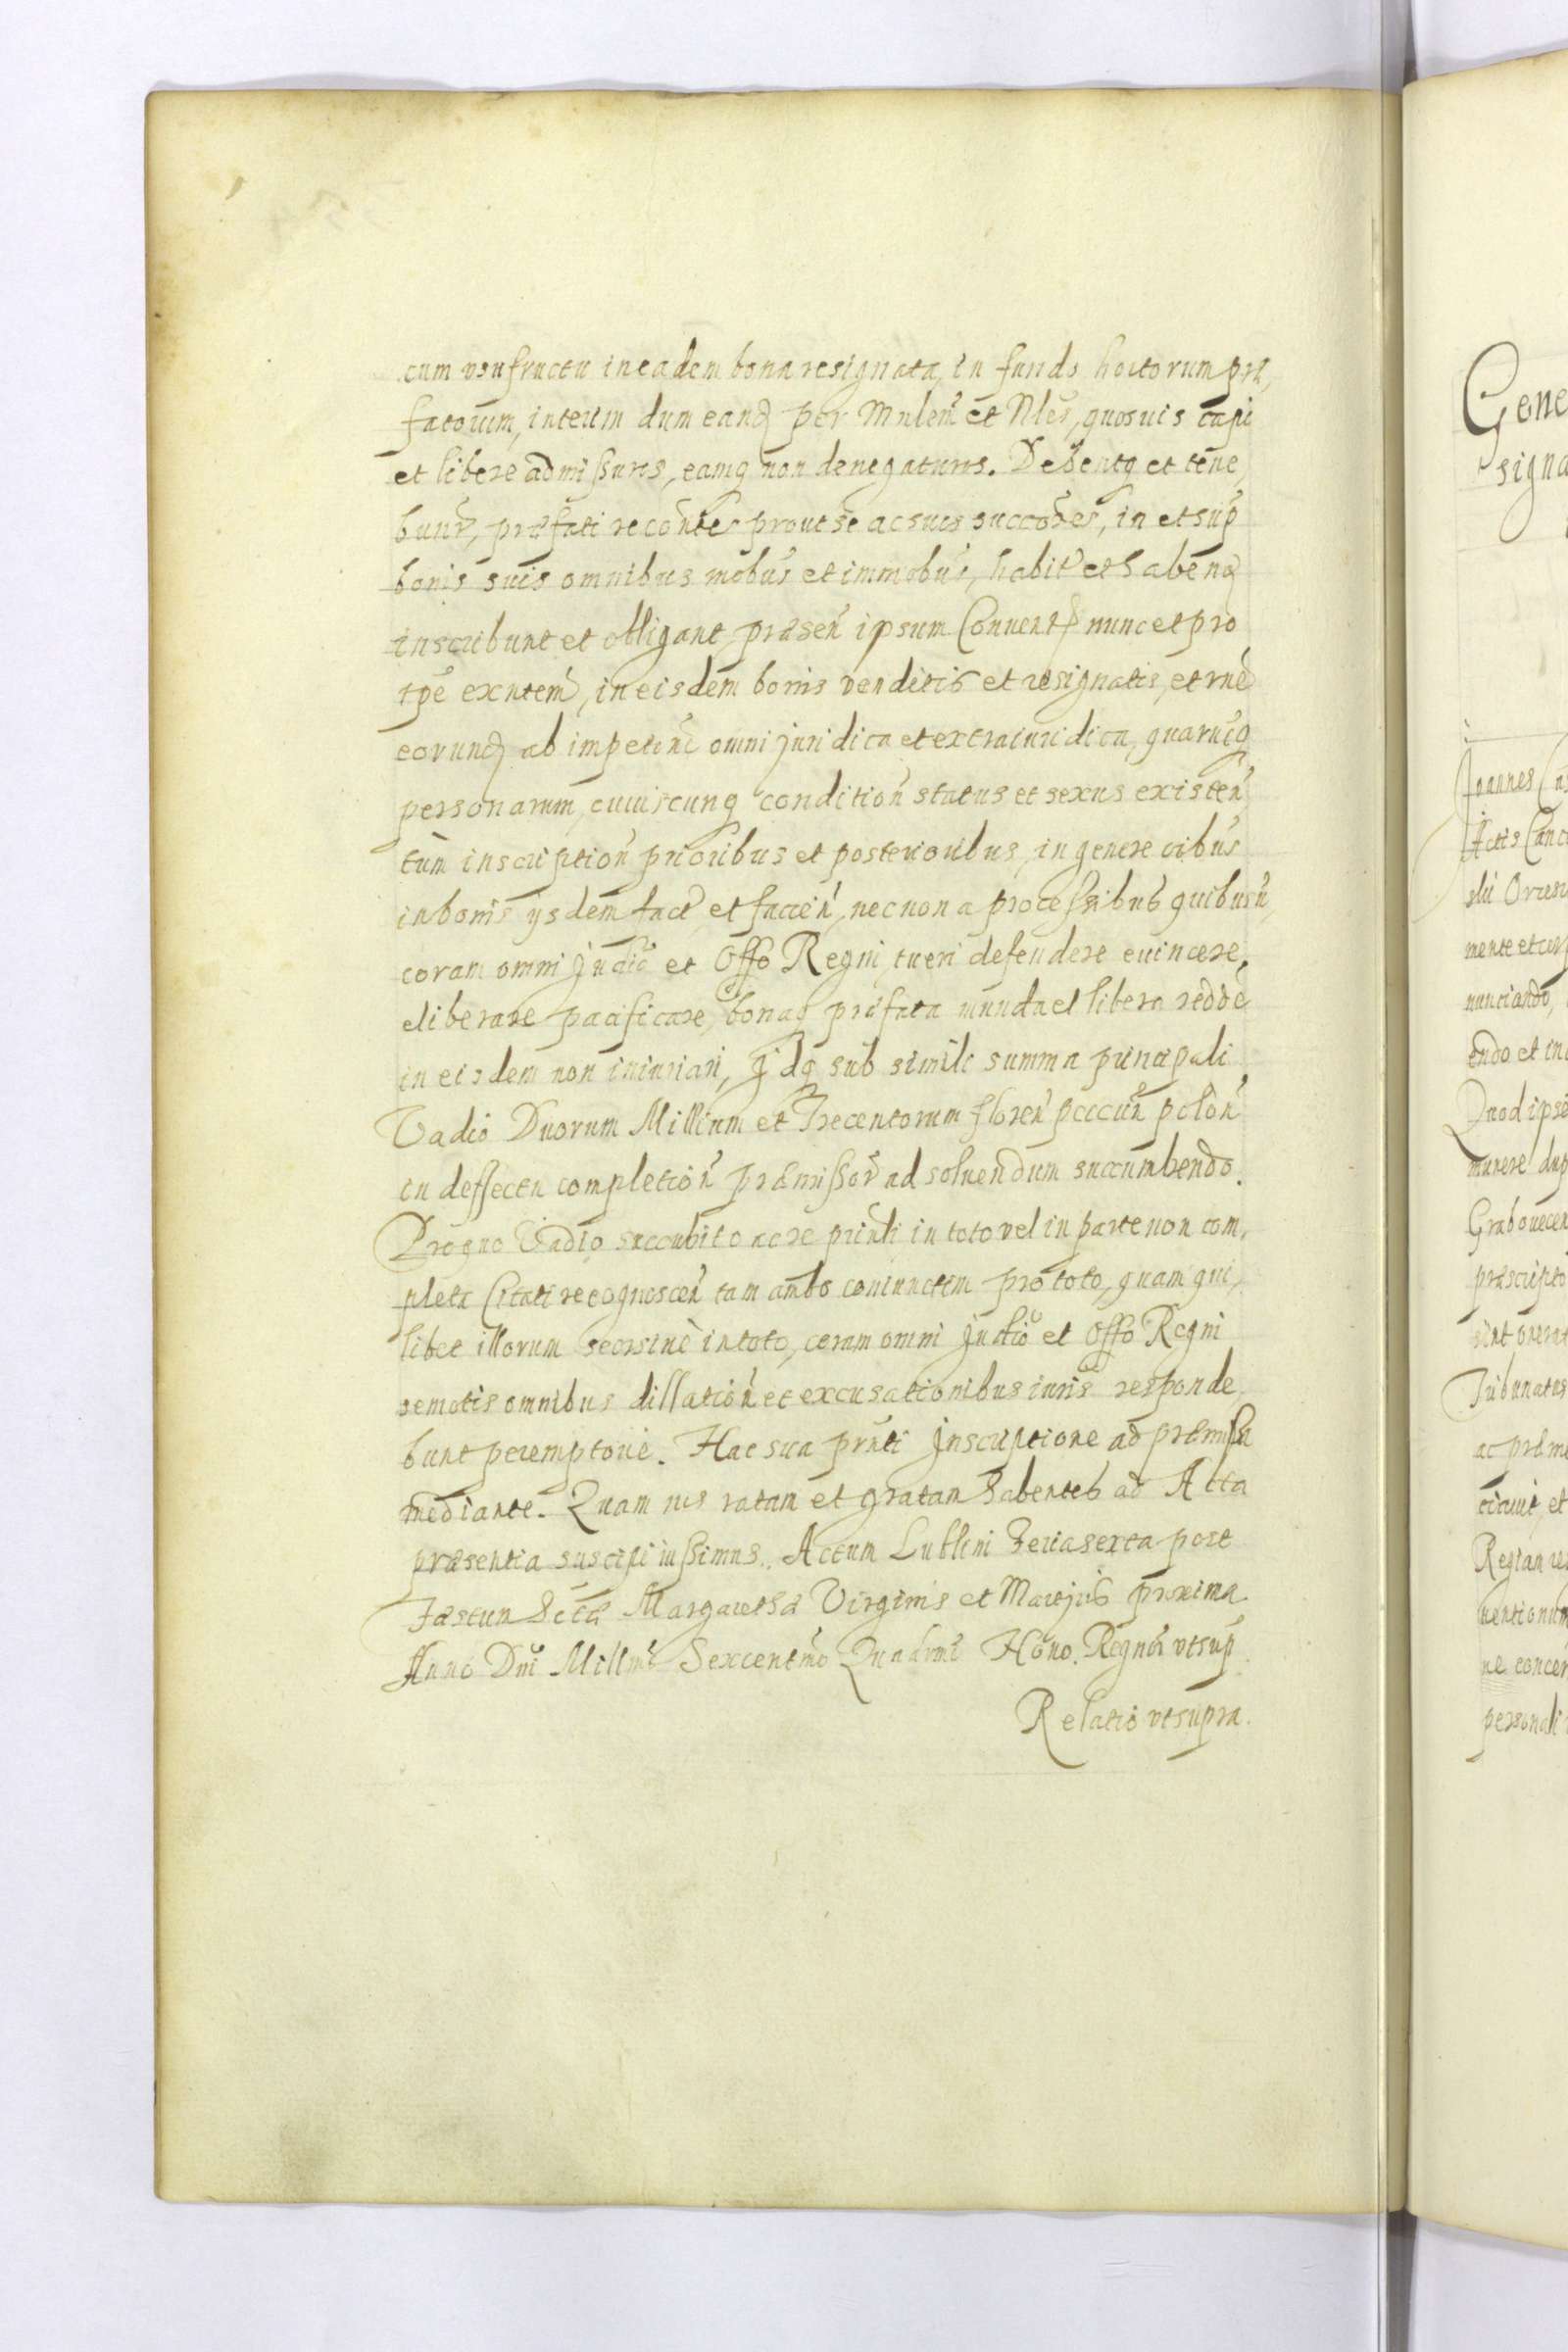 cum vsufructu in eadem bona resignata, in fundo hortorum præ,
fatorum, interim dum eand per Mnlem et Nles, quosuis capi
et libere admissuros, eamq non denegaturos. Debentq et tene,
bunt, præfati recontes prout se ac suos succores, in et sup
bonis suis omnibus mobus et immobus, habit et haben
inscribunt et obligant, præsen ipsum Conuent nunc et pro
tpe exntem, in eisdem bonis venditis et resignatis, et rne
eorund ab impetne omni juridica et extraiuridica, quarucq
personarum, cuiuscunq condition status et sexus existen
tum inscription prioribus et posterioribus, in genere oibus
in bonis ijsdem fact et facien, nec non a processibus quibusu,
coram omni judio et Offo Regni tueri defendere euincere,
eliberare pacificare, bonaq præfata munda et libera redde
in eisdem non iniuriari, Idq sub simili summa principali
Vadio Duorum Millium et Trecentorum floren pecun polon
in deffectu completion præmissor ad soluendum succumbendo.
Proquo Vadio succubito ac re prinli in toto vel in parte non com,
pleta Citati recognoscen tam ambo coniunctim pro toto, quam qui,
libet illorum seorsiue in toto, coram omni judio et Offo Regni
remotis omnibus dillation et excusationibus iuris responde
bunt peremptorie. Hac sua prnti Inscriptione ad præmissa
mediante. Quam nos ratam et gratam habentes ad Acta
præsentia suscipi iussimus. Actum Lublini Feria sexta post
Festum Sctæ Margarethæ Virginis et Martyris proxima
Anno Dni Millmo Sexcentmo Quadrmo Nono. Regnor vt sup
Relatio vt supra.
Gene
signa
Joannes Cas
Actis Cance
mente et corp
nunciando,
endo et in
Quod ipse
munere dup
Grabouecen
præscripto
sint onerat
Tribunatus
ac præmi
ciauit, et
Regiam
uentionum
ne concer
personali